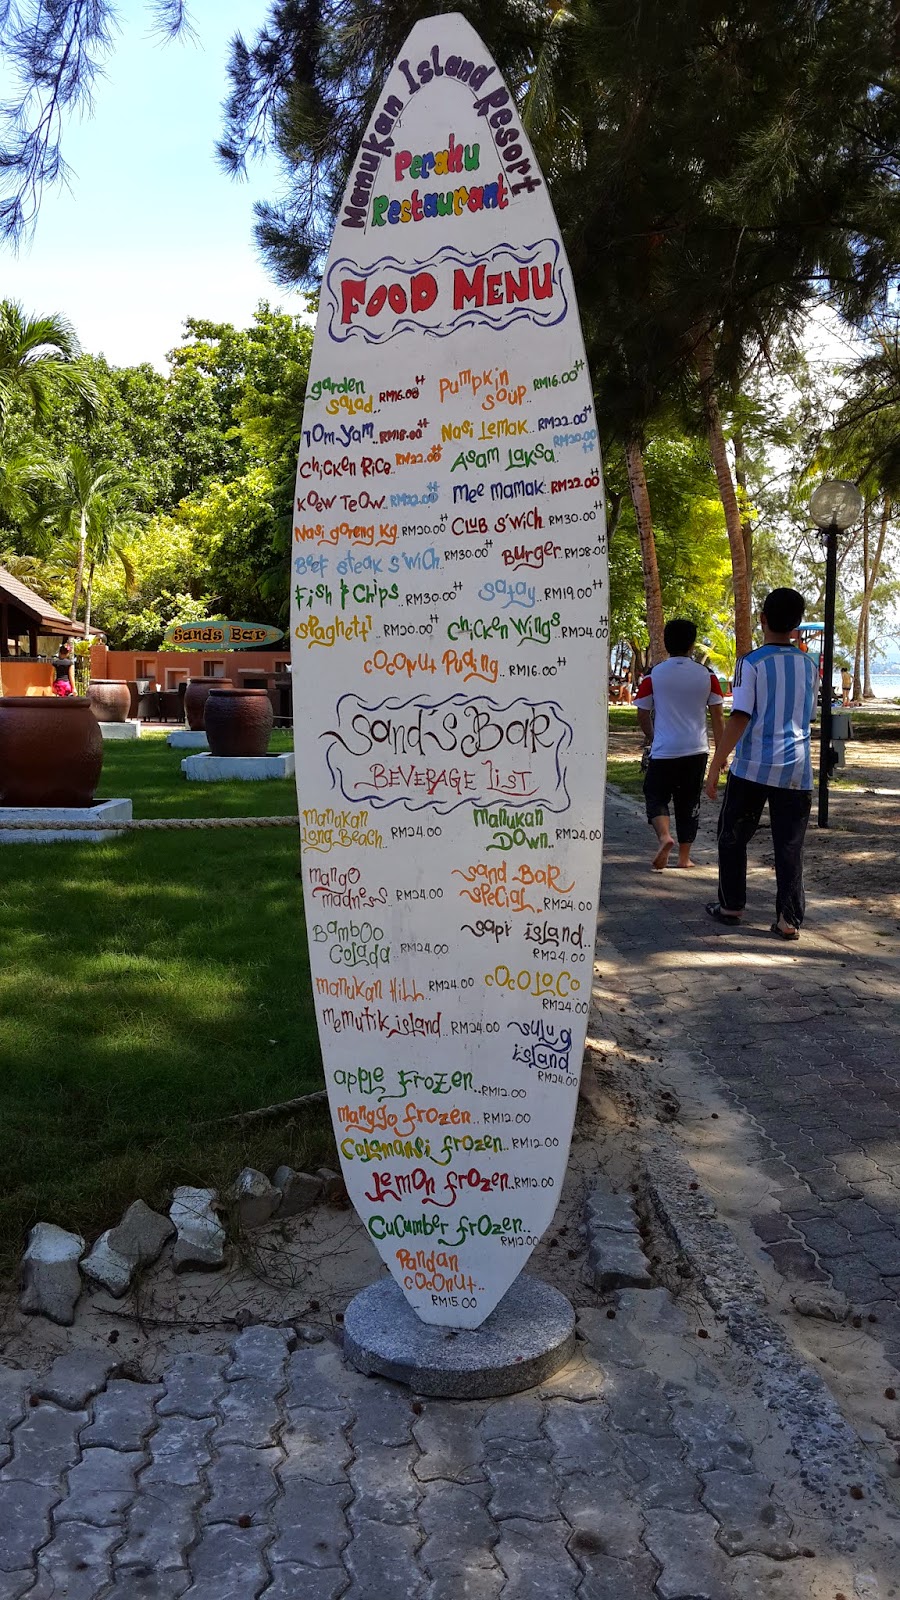 Manukan Island Resort
Perahu
Restaurant
FOOD MENU
garden salad.. RM16.00++
Pumpkin soup.. RM16.00++
Tom Yam.. RM18.00++
Nasi Lemak.. RM22.00++
Chicken Rice.. RM22.00++
Asam Laksa.. RM20.00++
Koew Teow.. RM22.00++
Mee mamak.. RM22.00++
Nasi goreng Kg RM20.00++
CLUB S'wich.. RM30.00++
Beef steak S'wich.. RM30.00++
Burger.. RM28.00++
Fish & Chips.. RM30.00++
Satay.. RM19.00++
spaghetti.. RM20.00++
Chicken Wings.. RM24.00++
coconut Puding.. RM16.00++
Sands Bar
Sand'S BaR
BEVERAGE LIST
Manukan Long Beach.. RM24.00
Manukan Down.. RM24.00
mango madness.. RM24.00
Sand Bar Special.. RM24.00
Bamboo Colada.. RM24.00
Sapi island.. RM24.00
manukan Hill.. RM24.00
COCO LOCO RM24.00
memutik island.. RM24.00
Sulug island.. RM24.00
apple Frozen.. RM12.00
manggo frozen.. RM12.00
Calamansi frozen.. RM12.00
Lemon frozen.. RM12.00
Cucumber frozen.. RM12.00
Pandan coconut.. RM15.00